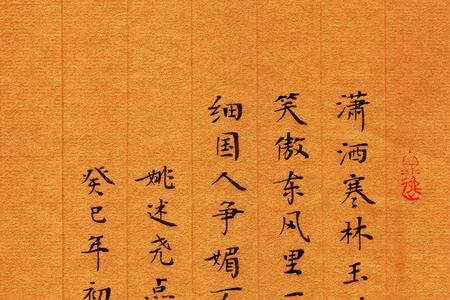 潇洒寒林玉
笑傲东风里
细国人争媚
姚述尧点
癸巳年初